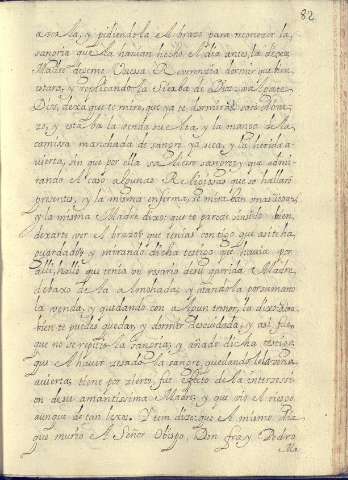 82
a verla, y pidiendole el brazo para reconozer la
sangria que la havian hecho el dia antes, la dixo la
Madre dexeme Quesa Reverencia dormir que bien
estara, y replicando la Sicaba de Dios
Dios, dexa que te mire, que ya te dormiras saco el bra-
zo, y estaba la venda suelta, y la manga de la
camissa manchada de sangre ya seca, y la herida a-
vierta, sin que por ella saliese sangre, y que admi-
rando el caso algunas Religiosas que se hallaron
presentes, y la misma enferma, se miraban unas a otras
y la misma Madre dixo: que te parece simple bien
dexarte ver el brazo que tenias contigo que asi te ha
guardado, y mirando dicha testigo que havia por
alli, hallo que tenia un rosario de su querida Madre
debaxo de la almohada, y atandola por su mano
la venda, y quedando con algun temor, la dixo
bien te puedes quedar, y dormir descuidada, y asi fue,
que no se repitio la sangria, y añade dicha testigo,
que el haver cesado la sangre, quedando la vena
avierta, tiene por zierto fue efecto de la interzessi-
on de su amantissima Madre, y que vio el riesgo
aunque de tan lexos. Y ten dize: que el mismo dia
que murio el Señor Obispo, Don fray Pedro
Ma